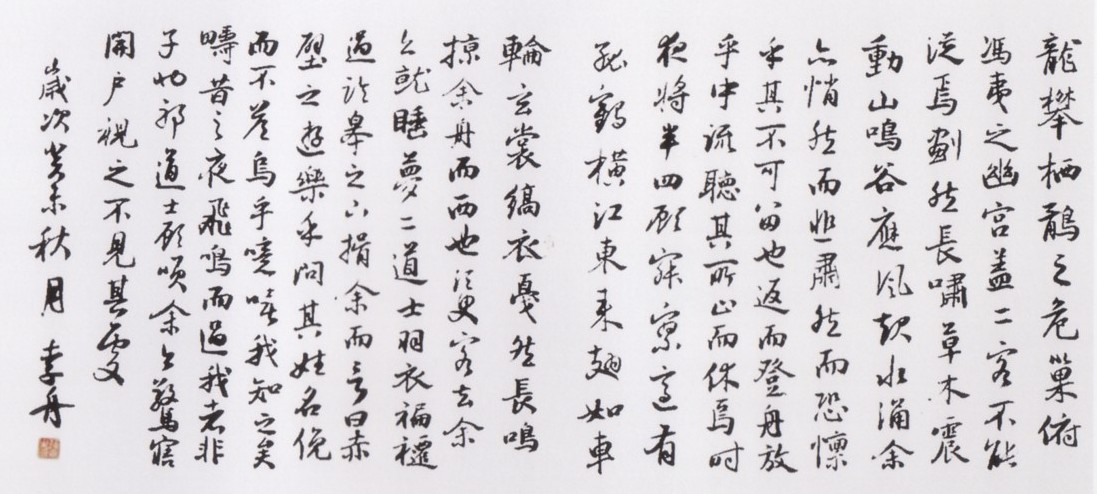 龍攀栖鶻之危巢俯
馮夷之幽宮蓋二客不能
從焉劃然長嘯草木震
動山鳴谷應風起水涌余
亦悄然而悲肅然而恐懍
乎其不可留也返而登舟放
乎中流聽其所止而休焉時
夜將半四顧寂寥適有
孤鶴橫江東來翅如車
輪玄裳縞衣戛然長鳴
掠余舟而西也須臾客去余
亦就睡夢二道士羽衣褊褼
過臨皋之下揖余而言曰赤
壁之遊樂乎問其姓名俛
而不答烏乎噫嘻我知之矣
疇昔之夜飛鳴而過我者非
子也邪道士顧笑余亦驚寤
開戶視之不見其處
歲次癸未秋月 李舟